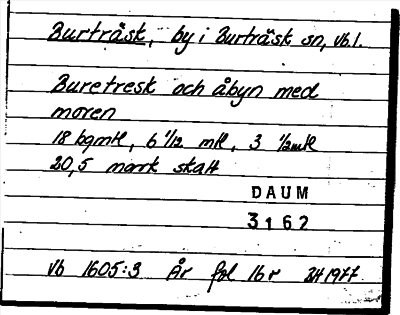 Burträsk, by i Burträsk sn, Vb.l.
Buretresk och åbyn med
moren
18 bgmkl, 6 1/2 mkl, 3 1/2 mkl
20,5 mark skatt
DAUM
3162
Vb 1605:3 År fol 16 r 1977